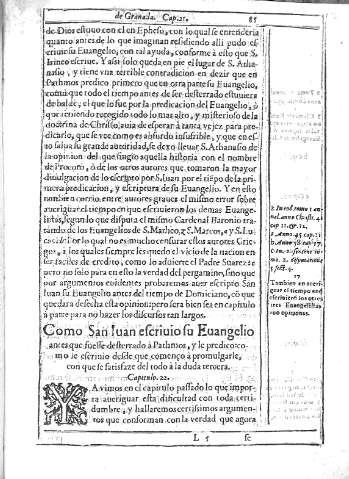 de Granada. Cap. 21. 85
de Dios estuuo con el en Epheso, con lo qual se entenderia
quanto antes de lo que imaginan residiendo alli pudo es-
criuir su Euangelio, con tal ayuda, conforme à esto que S.
Irineo escriue. Y assi solo queda en pie el lugar de S. Atha-
nasio, y tiene vna terrible contradicion en dezir que en
Pathmos predico primero que en otra parte su Euangelio,
como que todo el tiempo antes de ser desterrado estuuiera
de balde, el que lo fue por la predicacion del Euangelio, ò
que teniendo recogido todo lo mas alto, y misterioso de la
doctrina de Christo, auia de esperar à tanta vejez para pre-
dicarlo, que se vee como es absurdo insufrible, y que en es-
to salua su grande autoridad, se dexo lleuar S. Athanasio de
la opinion del que fingio aquella historia con el nombre
de Procoro, ò de los otros autores que tomaron la mayor
diuulgacion de lo escripto por S. Iuan por el tiẽpo de la pri-
mera predicacion, y escriptura de su Euangelio. Y en esto
tambien corrio entre autores graues el mismo error sobre
aueriguar el tiempo en que escriuieron los demas Euange-
listas, segun lo que disputa el mismo Cardenal Baronio tra-
tando de los Euangelios de S. Matheo, S. Marcos, y S. Lu-
cas Por lo qual no es mucho censurar estos autores Grie-
gos, a los quales siempre les quedo el vicio de la nacion en
ser faciles de credito, como lo aduierte el Padre Suarez
pero no solo para en ello la verdad del pergamino, sino que
por argumentos euidentes probaremos auer escripto San
Iuan su Euangelio antes del tiempo de Domiciano, cõ que
quedara desecha esta opinion; pero sera bien sea en capitulo
à parte para no hazer los discursos tan largos.
Como San Iuan escriuio su Euangelio
antes que fuesse desterrado à Pathmos, y le predico co-
mo le escriuio desde que començo à promulgarle,
con que se satisfaze del todo à la duda tercera.
Capitulo. 22.
YA vimos en el capitulo passado lo que impor-
ta aueriguar esta dificultad con toda certi-
dumbre, y hallaremos certissimos argumen-
tos que conforman con la verdad que agora
L 5 se
27
Tambien en aueri-
guar el tiempo que
escriuieron los otros
tres Euangelistas